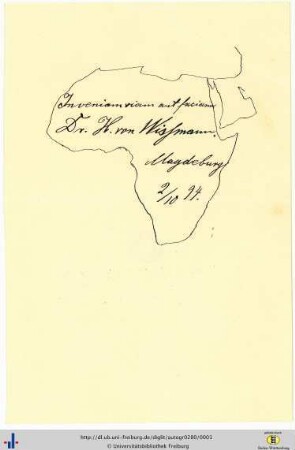 Inveniam viam aut faciam
Dr. H. von Wissmann.
Magdeburg
2/10 94.
http://dl.ub.uni-freiburg.de/diglit/autogr0280/0001
© Universitätsbibliothek Freiburg